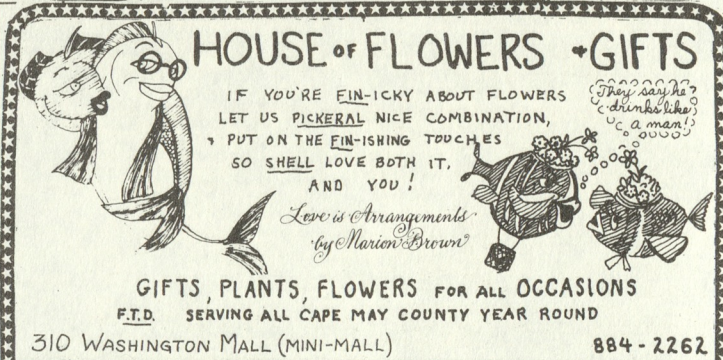 HOUSE OF FLOWERS & GIFTS
IF YOU'RE FIN-ICKY ABOUT FLOWERS
LET US PICKERAL NICE COMBINATION,
PUT ON THE FIN-ISHING TOUCHES
SO SHELL LOVE BOTH IT,
AND YOU!
They say he
drinks like
a man!
Love is Arrangements
by Marion Brown
GIFTS, PLANTS, FLOWERS FOR ALL OCCASIONS
F.T.D. SERVING ALL CAPE MAY COUNTY YEAR ROUND
310 WASHINGTON MALL (MINI-MALL)
884-2262